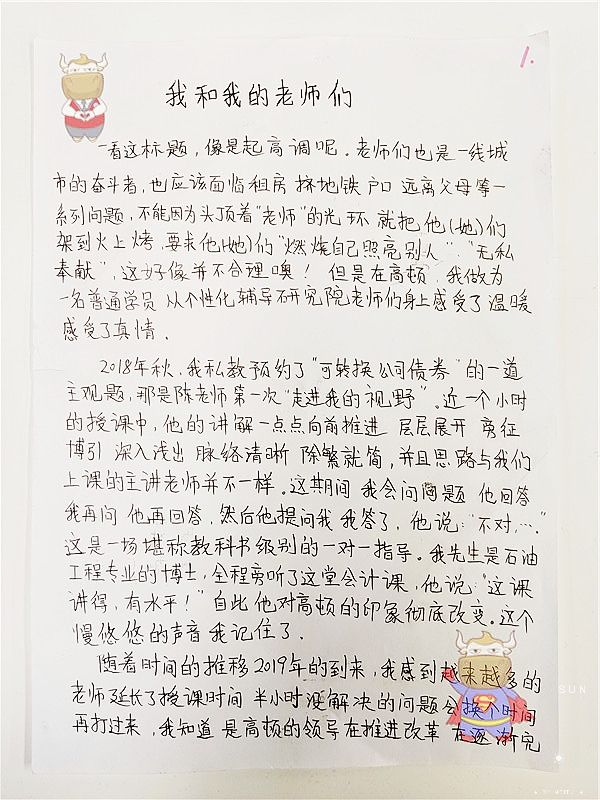 1.
我和我的老师们
一看这标题，像是起高调呢。老师们也是一线城
市的奋斗者，也应该面临租房 挤地铁 户口 远离父母等一
系列问题，不能因为头顶着“老师”的光环 就把他(她)们
架到火上烤，要求他(她)们“燃烧自己照亮别人”、“无私
奉献”，这好像并不合理噢！但是在高顿，我做为
一名普通学员 从个性化辅导研究院老师们身上感受了温暖
感受了真情。
2018年秋，我私教预约了“可转换公司债券”的一道
主观题，那是陈老师第一次“走进我的视野”。近一个小时
的授课中，他的讲解一点点向前推进 层层展开 旁征
博引 深入浅出 脉络清晰 除繁就简，并且思路与我们
上课的主讲老师并不一样。这期间 我会问问题 他回答
我再问 他再回答，然后他提问我 我答了，他说：“不对，…”
这是一场堪称教科书级别的一对一指导。我先生是石油
工程专业的博士，全程旁听了这堂会计课，他说：“这课
讲得，有水平！”自此他对高顿的印象彻底改变。这个
慢悠悠的声音我记住了。
随着时间的推移2019年的到来，我感到越来越多的
老师延长了授课时间 半小时没解决的问题会换个时间
再打过来，我知道是高顿的领导在推进改革 在逐渐完
SUN